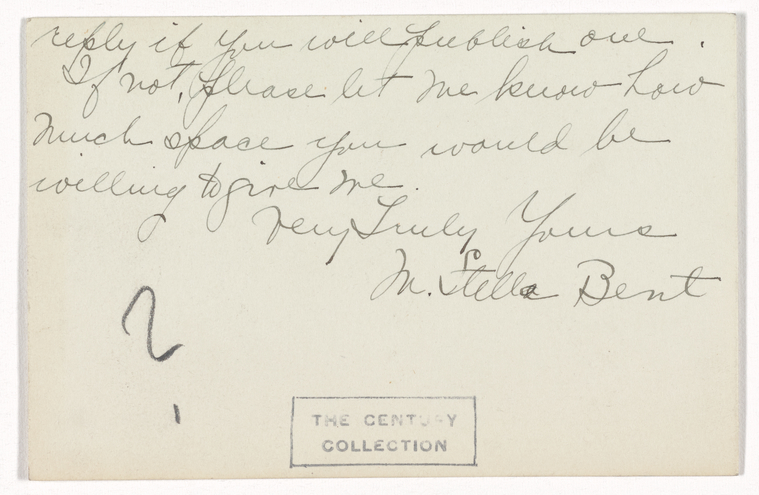 reply if you will publish one.
If not, please let me know how
much space you would be
willing to give me.
Very Truly Yours
M. Stella Bent
?
THE CENTURY
COLLECTION